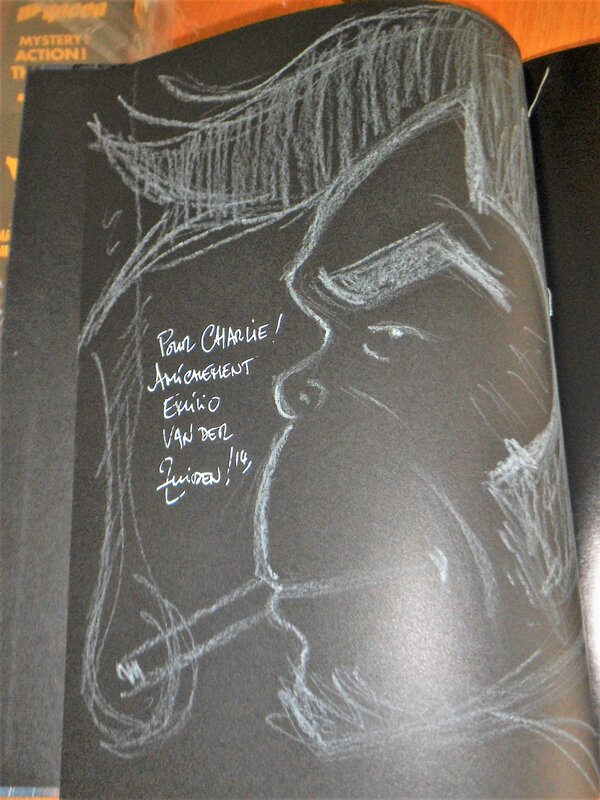 MYSTERY!
ACTION!
POUR CHARLIE!
AMICALEMENT
EMILIO
VAN DER
ZUIDEN! '14